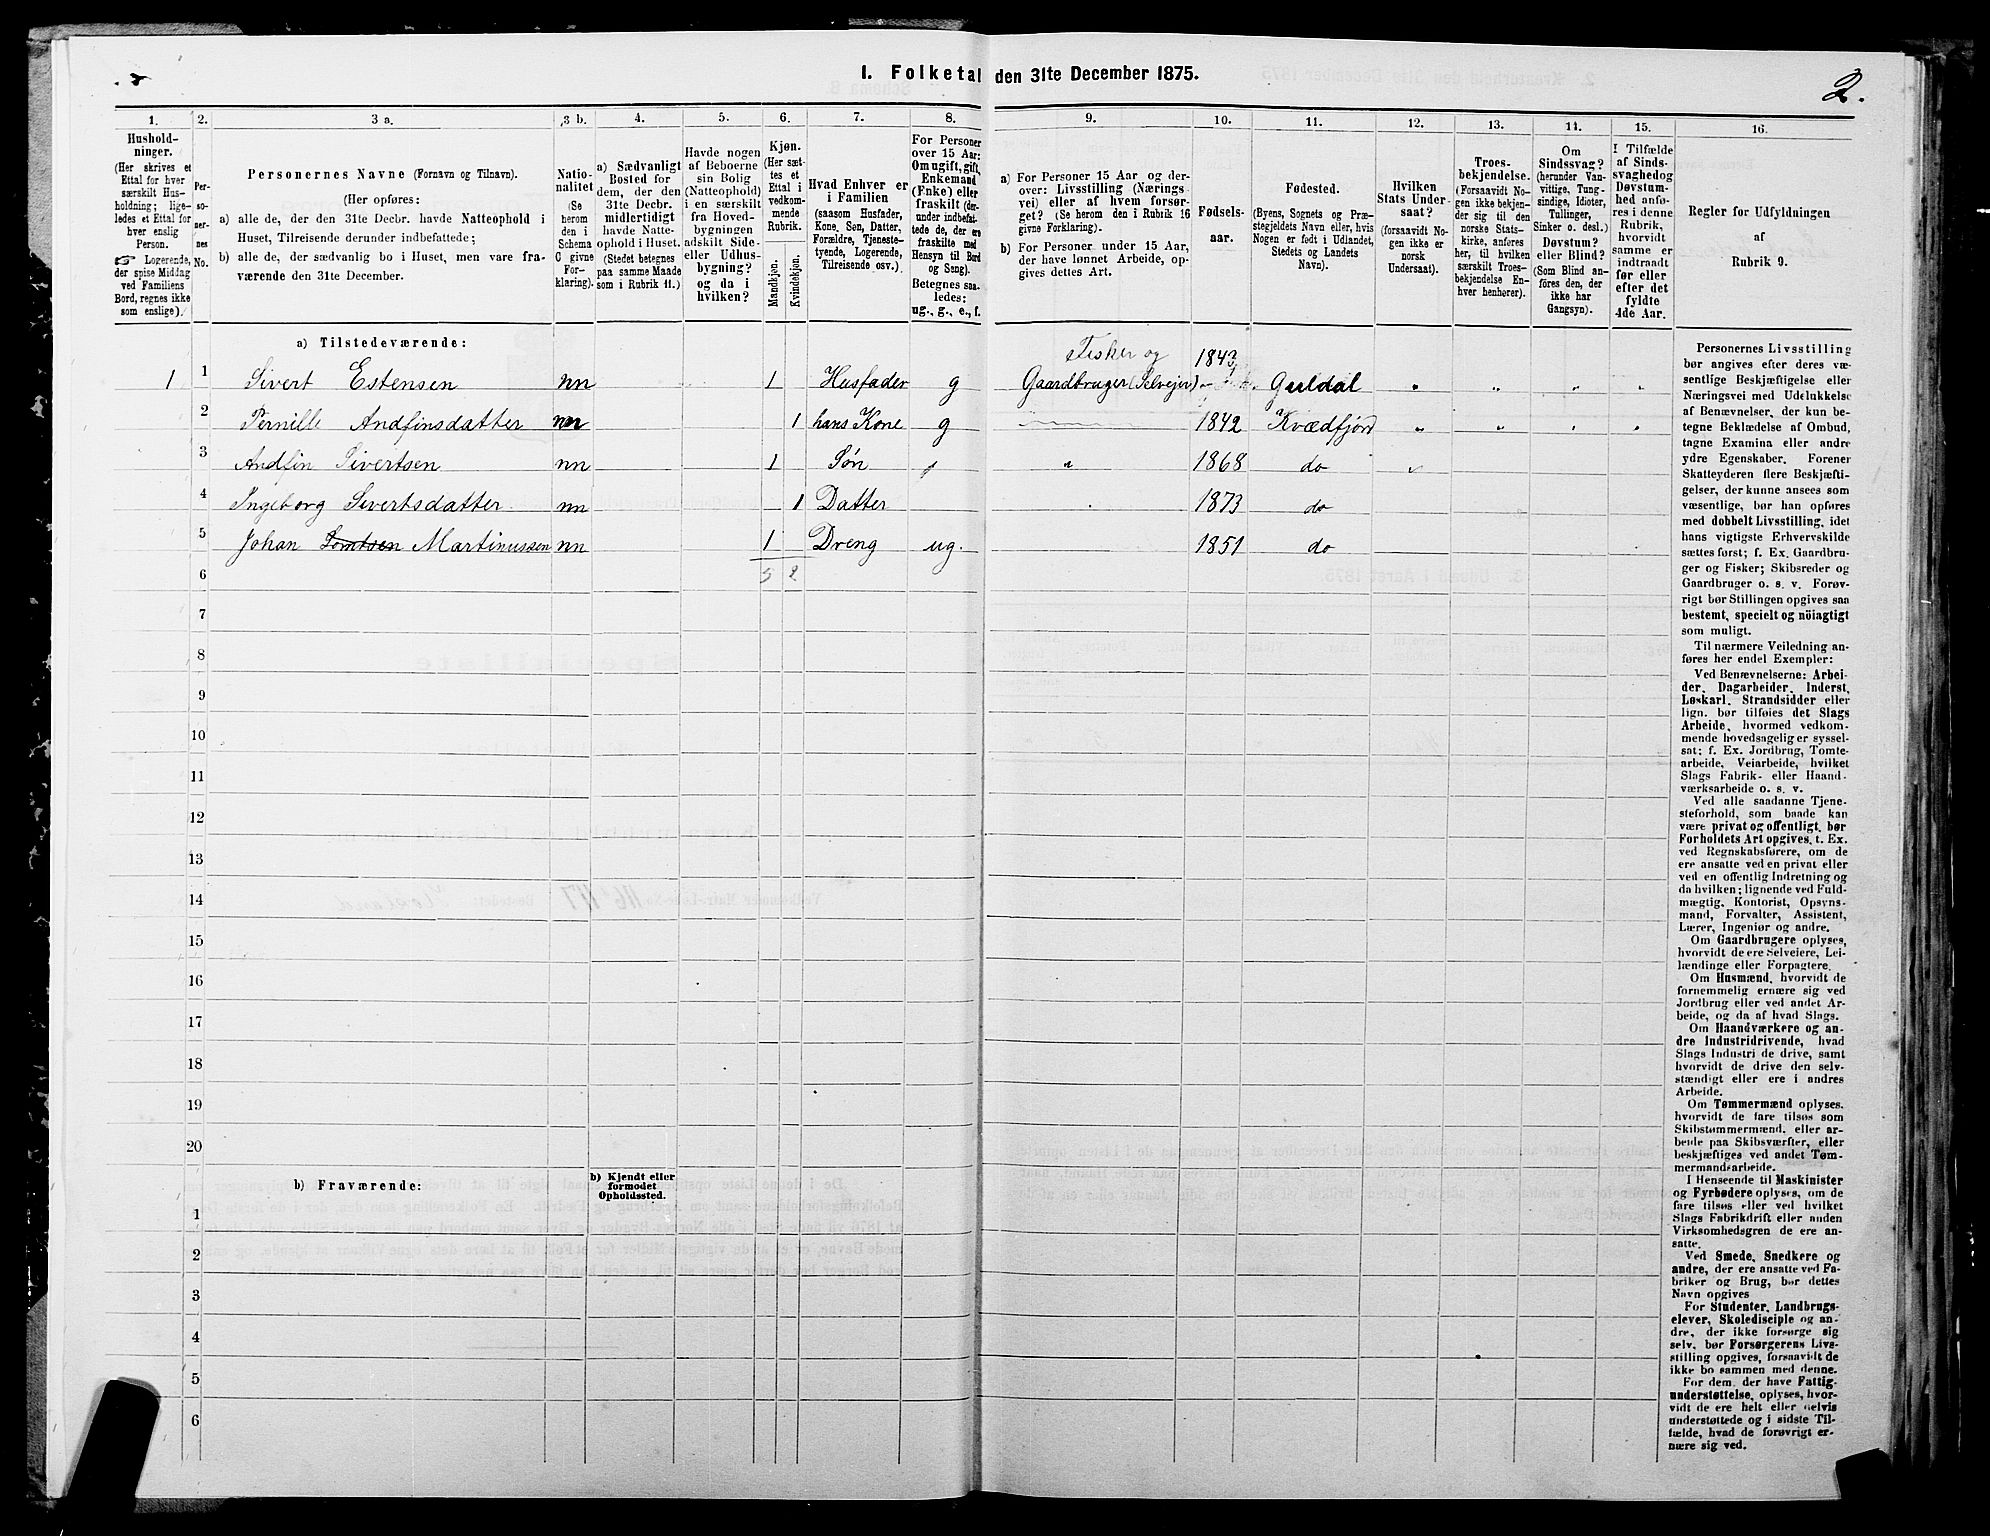 I. Folketal den 31te December 1875.
2.
1.
Hushold-
ninger.
(Her skrives et
Ettal for hver
særskilt Hus-
holdning; lige-
ledes et Ettal for
hver enslig
Person.
☞ Logerende,
der spise Middag
ved Familiens
Bord, regnes ikke
som enslige).
2.
Per-
so-
ner-
nes
No.
3 a.
Personernes Navne (Fornavn og Tilnavn).
(Her opføres:
a) alle de, der den 31te Decbr. havde Natteophold i
Huset, Tilreisende derunder indbefattede;
b) alle de, der sædvanlig bo i Huset, men vare fra-
værende den 31te December.
3 b.
Natio-
nalitet
(Se
herom
den i
Schema
C givne
For-
klaring).
4.
a) Sædvanligt
Bosted for
dem, der den
31te Decbr.
midlertidigt
havde Natte-
ophold i Huset.
(Stedet betegnes
paa samme Maade
som i Rubrik 11.)
5.
Havde nogen
af Beboerne
sin Bolig
(Natteophold)
i en særskilt
fra Hoved-
bygningen
adskilt Side-
eller Udhus-
bygning?
og da i
hvilken?
6.
Kjøn.
(Her sæt-
tes et
Ettal i
vedkom-
mende
Rubrik.
Mandkjøn.
Kvindekjøn.
7.
Hvad Enhver er
i Familien
(saasom Husfader,
Kone, Søn, Datter,
Forældre, Tjeneste-
tyende, Logerende,
Tilreisende osv.)
8.
For Personer
over 15 Aar:
Om ugift, gift,
Enkemand
(Enke) eller
fraskilt (der-
under indbefat-
tede de, der ere
fraskilte med
Hensyn til Bord
og Seng).
Betegnes saa-
ledes:
ug., g., e., f.
9.
a) For Personer 15 Aar og der-
over: Livsstilling (Nærings-
vei) eller af hvem forsør-
get? (Se herom den i Rubrik 16
givne Forklaring).
b) For Personer under 15 Aar,
der have lønnet Arbeide, op-
gives dettes Art.
10.
Fødsels-
aar.
11.
Fødested.
(Byens, Sognets og Præ-
stegjeldets Navn eller, hvis
Nogen er født i Udlandet,
Stedets og Landets
Navn).
12.
Hvilken
Stats Under-
saat?
(forsaavidt No-
gen ikke er
norsk
Undersaat).
13.
Troes-
bekjendelse.
(Forsaavidt No-
gen ikke bekjen-
der sig til den
norske Stats-
kirke, anføres
her, til hvilken
særskilt Troes-
bekjendelse En-
hver henhører).
14.
Om
Sindssvag?
(herunder Van-
vittige, Tung-
sindige, Idioter,
Tullinger,
Sinker o. desl.)
Døvstum?
eller Blind?
(Som Blind an-
føres den, der
ikke har
Gangsyn).
15.
I Tilfælde
af Sinds-
svaghed og
Døvstum-
hed anfø-
res i denne
Rubrik,
hvorvidt
samme er
indtraadt
før eller
efter det
fyldte
4de Aar.
16.
Regler for Udfyldningen
af
Rubrik 9.
a) Tilstedeværende:
1 1 Sivert Estensen nn 1 Husfader g Fisker og Gaardbruger (Selvejer) 1843 Guldal
2 Pernille Andfinsdatter nn 1 hans Kone g 1842 Kvædfjord
3 Andfin Sivertsen nn 1 Søn 1868 do
4 Ingeborg Sivertsdatter nn 1 Datter 1873 do
5 Johan Martinussen nn 1 Dreng ug. 1851 do
6 5 2
7
8
9
10
11
12
13
14
15
16
17
18
19
20
b) Fraværende:
b) Kjendt eller
formodet
Opholdssted.
1
2
3
4
5
6
Personernes Livsstilling
bør angives efter deres væ-
sentlige Beskjæftigelse eller
Næringsvei med Udelukkelse
af Benævnelser, der kun be-
tegne Beklædelse af Ombud,
tagne Examina eller andre
ydre Egenskaber. Forener
Skatteyderen flere Beskjæfti-
gelser, der kunne ansees som
væsentlige, bør han opføres
med dobbelt Livsstilling, idet
hans vigtigste Erhvervskilde
sættes først; f. Ex. Gaardbru-
ger og Fisker; Skibsreder og
Gaardbruger o. s. v. Forøv-
rigt bør Stillingen opgives saa
bestemt, specielt og nöiagtigt
som muligt.
Til nærmere Veiledning an-
føres her endel Exempler:
Ved Benævnelserne: Arbei-
der, Dagarbeider, Inderst,
Løskarl, Strandsidder eller
lign. bør tilføies det Slags
Arbeide, hvormed vedkom-
mende hovedsagelig er syssel-
sat; f. Ex. Jordbrug, Tomte-
arbeide, Veiarbeide, hvilket
Slags Fabrik- eller Haand-
værksarbeide o. s. v.
Ved alle saadanne Tjene-
steforhold, som baade kan
være privat og offentligt, bør
Forholdets Art opgives, t. Ex.
ved Regnskabsførere, om de
ere ansatte ved en privat eller
ved en offentlig Indretning og
da hvilken; lignende ved Fuld-
mægtig, Kontorist, Opsyns-
mand, Forvalter, Assistent,
Lærer, Ingeniør og andre.
Om Gaardbrugere oplyses,
hvorvidt de ere Selveiere, Lei-
lændinge eller Forpagtere.
Om Husmænd, hvorvidt de
fornemmelig ernære sig ved
Jordbrug eller ved andet Ar-
beide, og da af hvad Slags.
Om Haandværkere og an-
dre Industridrivende, hvad
Slags Industri de drive, samt
hvorvidt de drive den selv-
stændigt eller ere i andres
Arbeide.
Om Tømmermænd oplyses,
hvorvidt de fare tilsøs som
Skibstømmermænd, eller ar-
beide paa Skibsværfter, eller
beskjæftiges ved andet Tøm-
mermandsarbeide.
I Henseende til Maskinister
og Fyrbødere oplyses, om de
fare tilsøs eller ved hvilket
Slags Fabrikdrift eller anden
Virksomhedsgren de ere an-
satte.
Ved Smede, Snedkere og
andre, der ere ansatte ved Fa-
briker og Brug, bør dettes
Navn opgives
For Studenter, Landbrugs-
elever, Skoledisciple og an-
dre, der ikke forsørge sig
selv, bør Forsørgerens Livs-
stilling opgives, forsaavidt de
ikke bo sammen med denne.
For dem, der have Fattig-
understøttelse, oplyses, hvor-
vidt de ere helt eller delvis
understøttede og i sidste Til-
fælde, hvad de forøvrigt er-
nære sig ved.